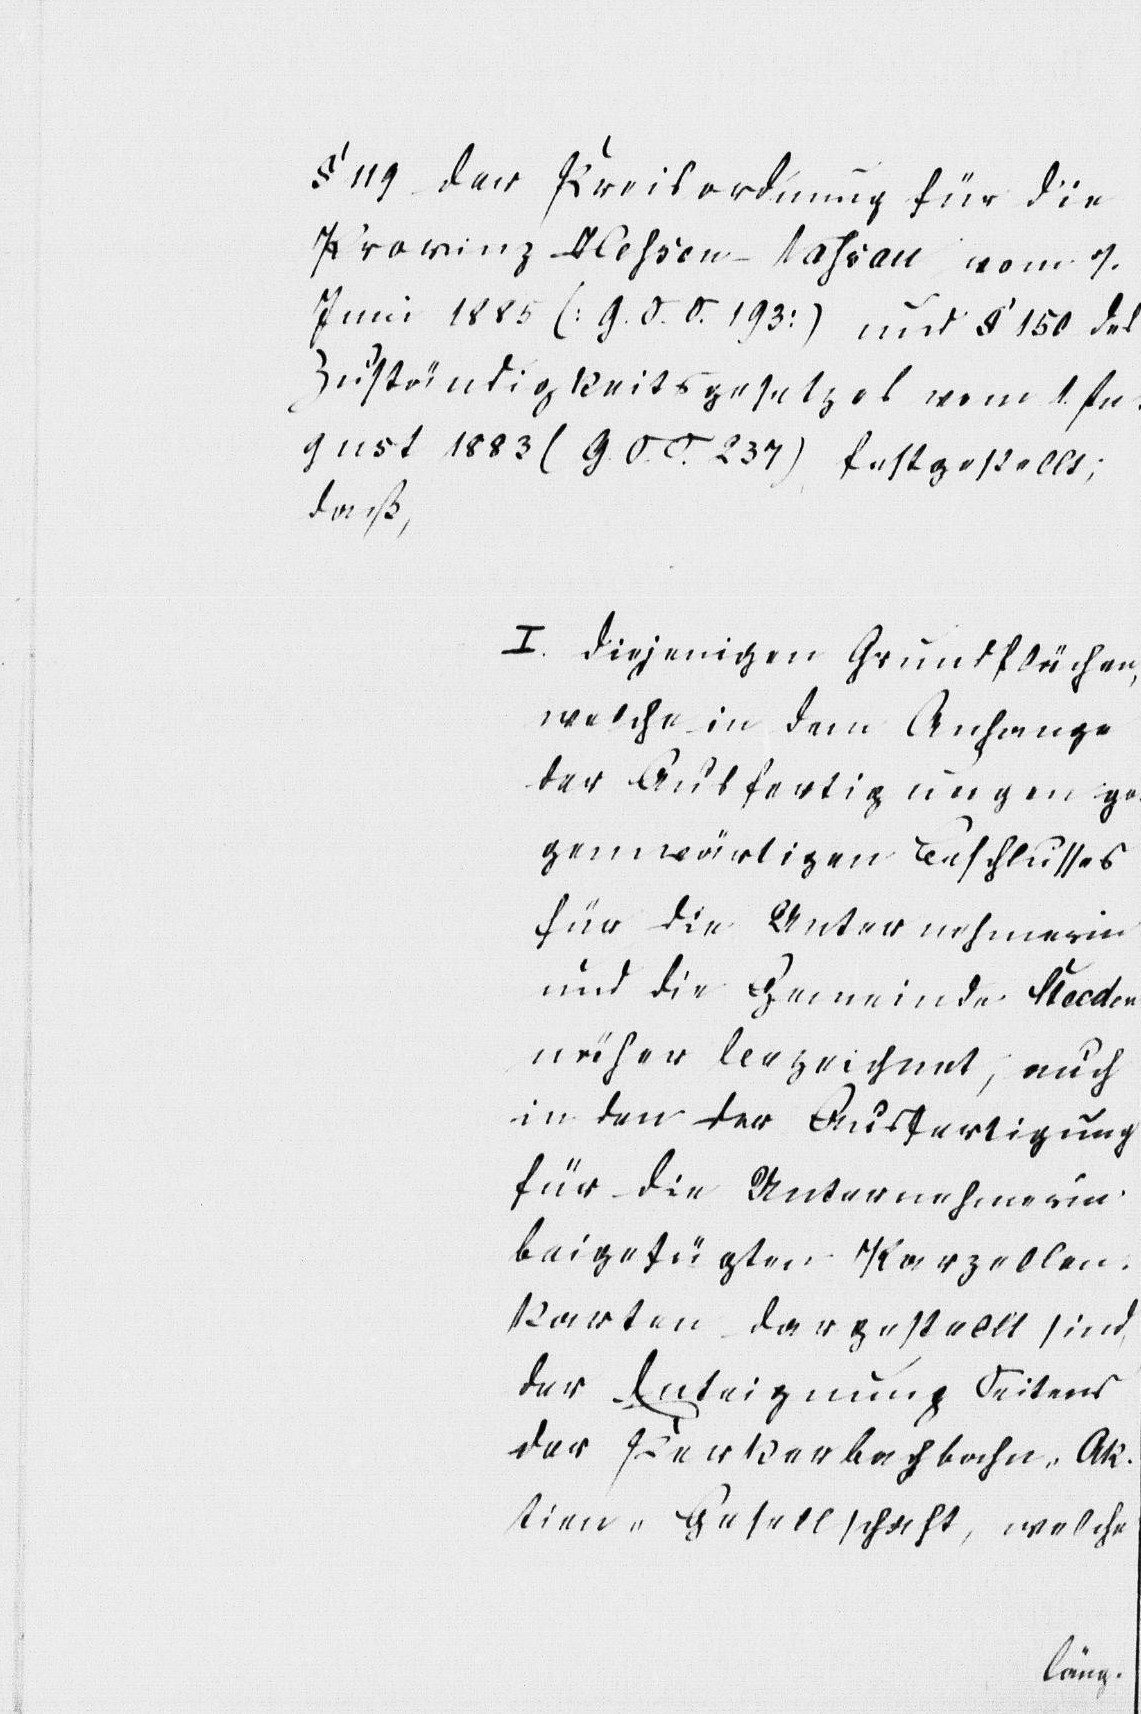 § 119 der Kreisordnung für die
Provinz Hessen-Nassau vom 7.
Juni 1885 (: G. S. S. 193:) und § 150 des
Zuständigkeitsgesetzes vom 1. Au-
gust 1883 ( G. S. S. 237) festgestellt;
daß,
I. diejenigen Grundflächen,
welche in dem Anhange
der Ausfertigungen ge-
genwärtigen Beschlusses
für die Unternehmerin
und die Gemeinde Steeden
näher bezeichnet, auch
in den der Ausfertigung
für die Unternehmerin
beigefügten Parzellen-
karten dargestellt sind,
der Enteignung Seitens
der Kerkerbachbahn-Ak-
tien-Gesellschaft, welche
läng-